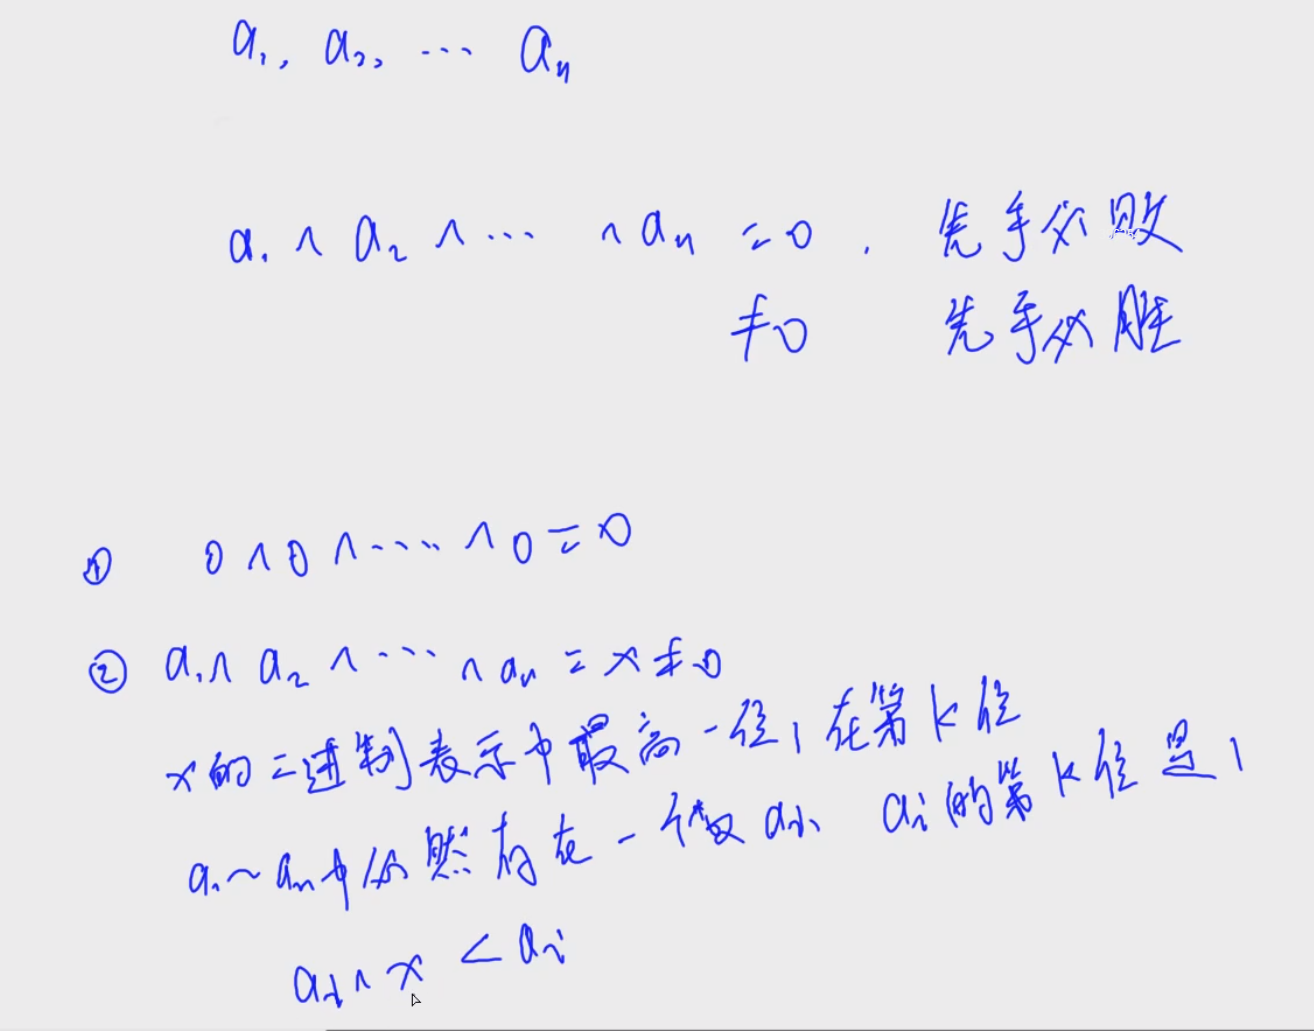 a₁, a₂, … aₙ
a₁ ^ a₂ ^ … ^ aₙ = 0, 先手必败
≠0 先手必胜
① 0 ^ 0 ^ … ^ 0 = 0
② a₁ ^ a₂ ^ … ^ aₙ = x ≠ 0
x的二进制表示中最高一位1在第k位
a₁~aₙ中必然存在一个数aᵢ, aᵢ的第k位是1
aᵢ ^ x < aᵢ